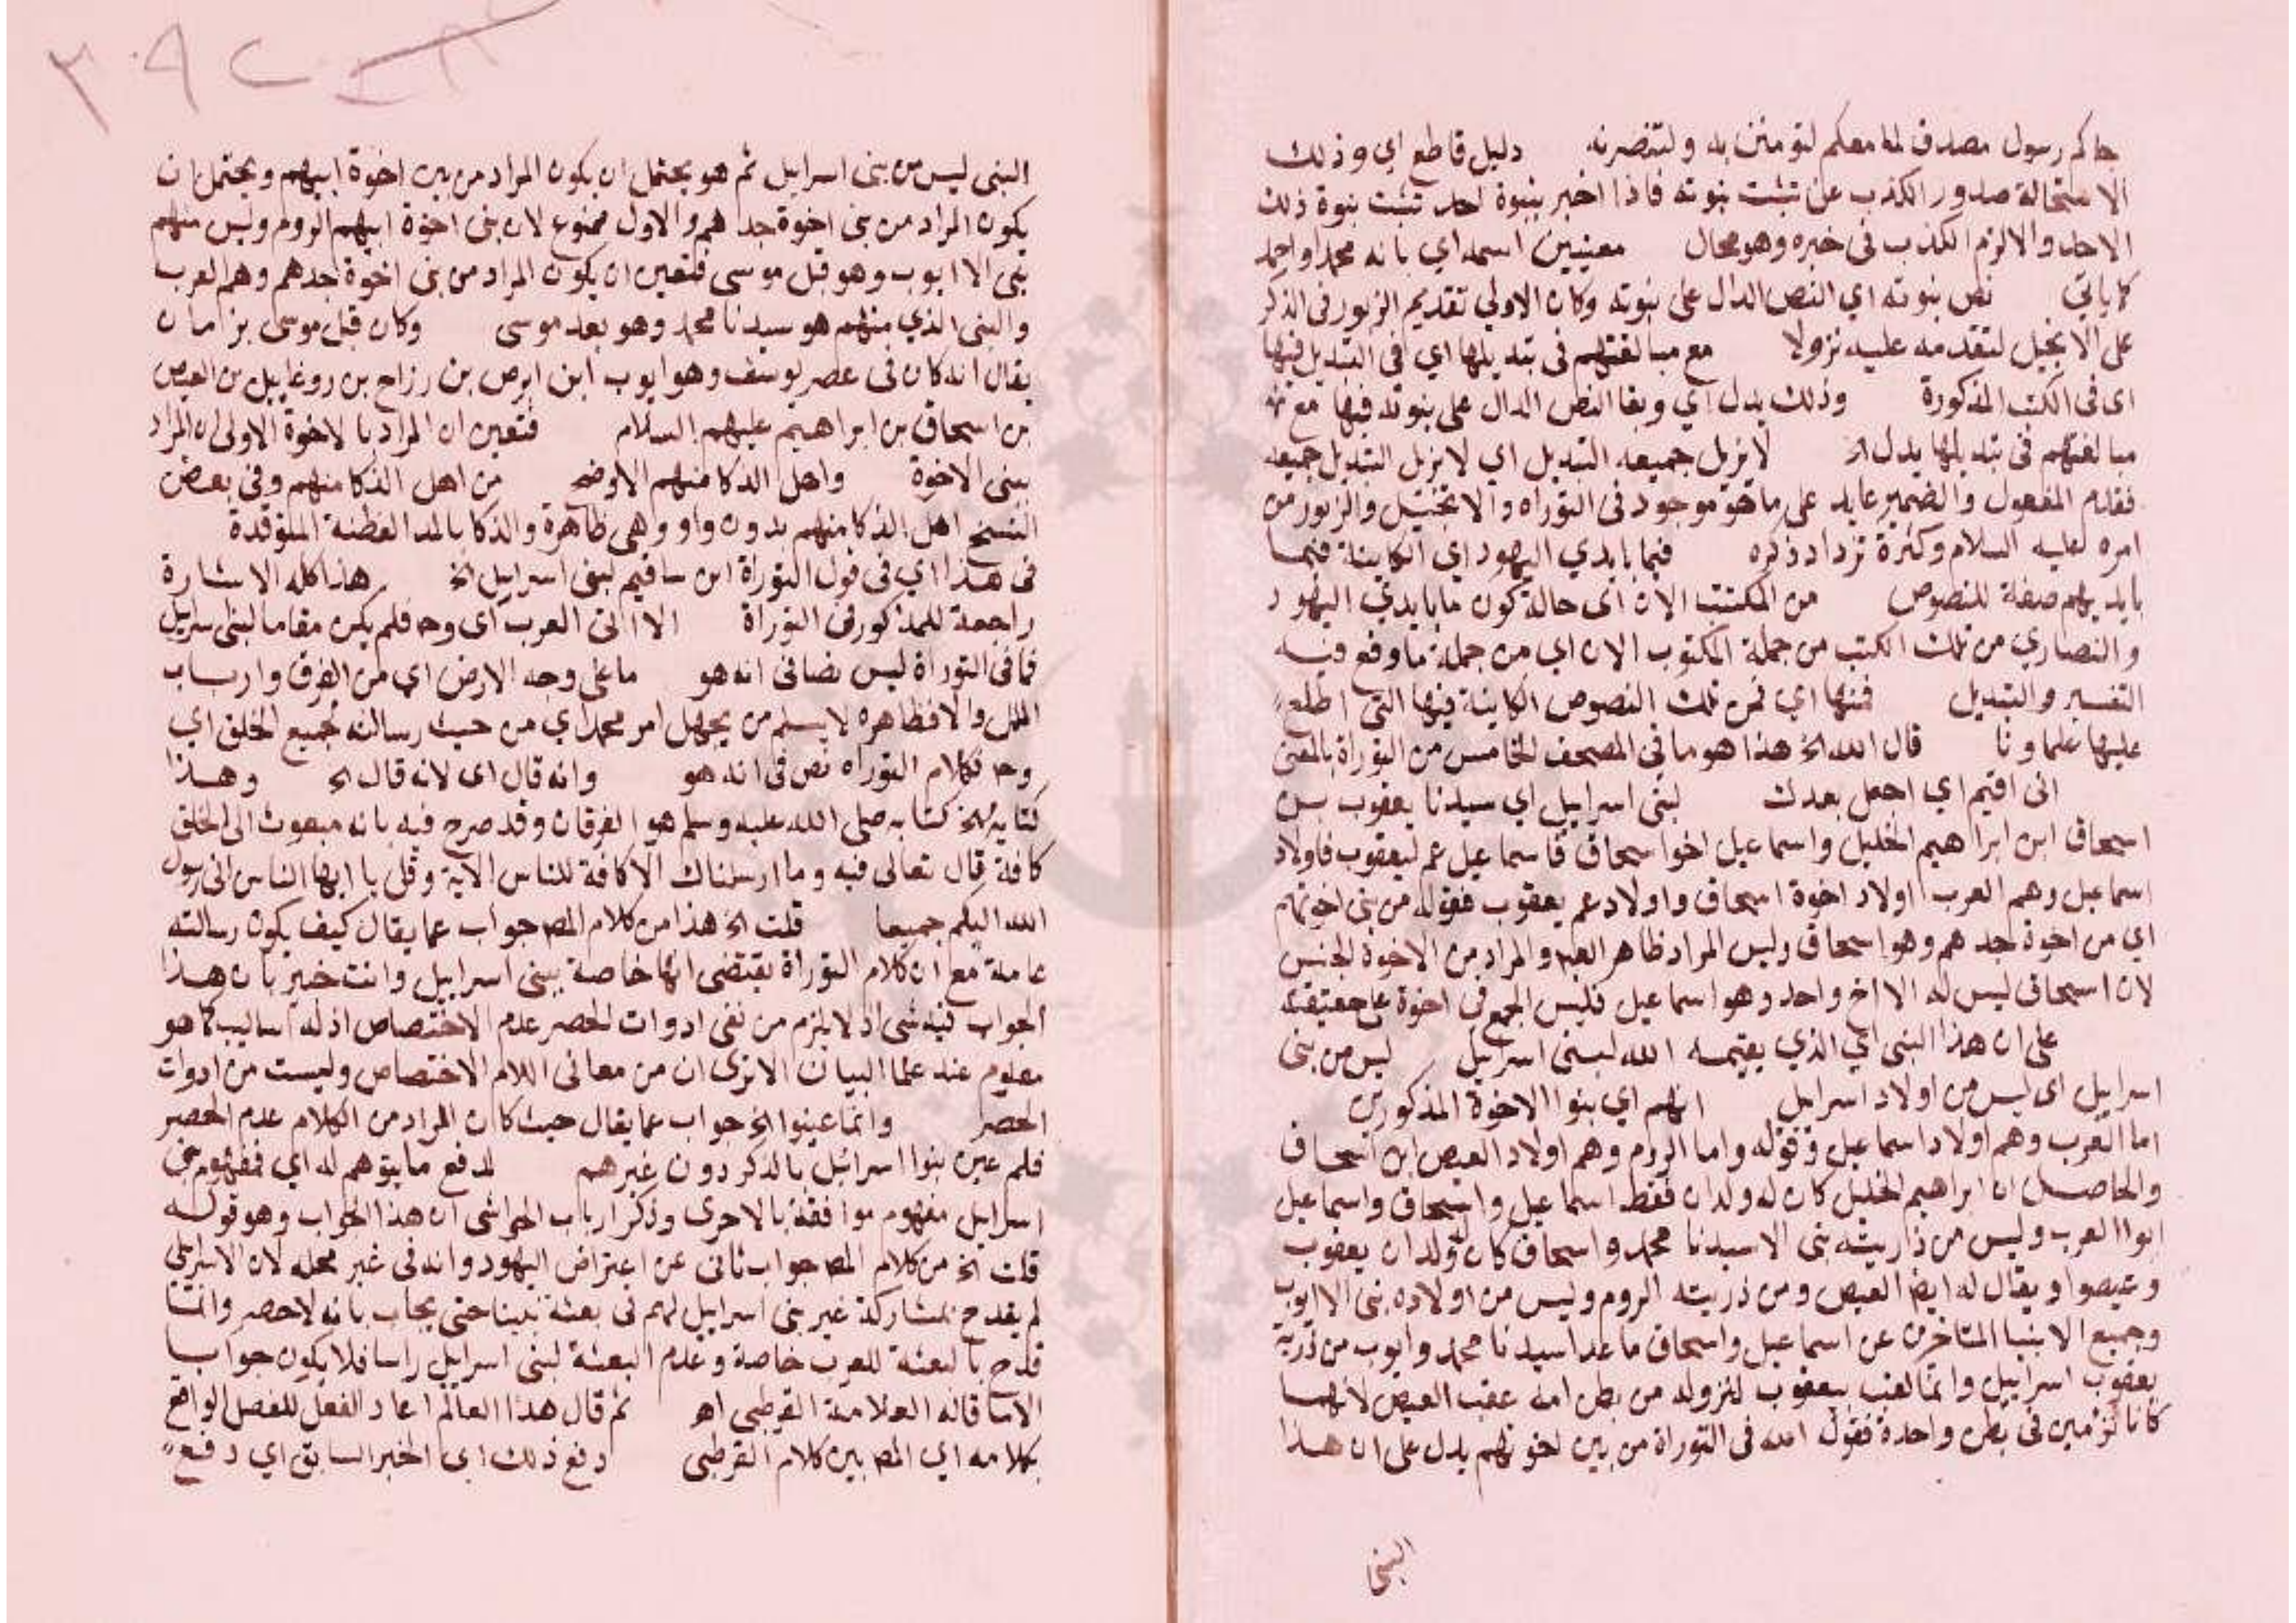 جاكم رسول مصدق لما معكم لتؤمنن به ولتنصرنه دليل قاطع اي وذلك
لاستحالة صدور الكذب عن تثبت نبوته فاذا اخبر بنبوة احد تثبت نبوة ذلك
الاحد والا لزم الكذب في خبره وهو محال معينين اسمه اي بانه محمد واحمد
كما ياتي نص نبوته اي النص الدال على نبوته وكان الاولي تقديم الزبور في الذكر
على الانجيل لتقدمه عليه نزولا مع مبالغتهم في تبديلها اي في التبديل فيها
اى في الكتب المذكورة وذلك يدل اي وبقا النص الدال على نبوته فيها مع
مبالغتهم في تبديلها يدل الخ لا يزيل جميعه التبديل اي لا يزيل التبديل جميعه
فقدم المفعول والضمير عايد على ما هو موجود في التوراه والانجيل والزبور من
امره عليه السلام وكثرة ترداد ذكره فيما بايدي اليهود اي الكاينة فيما
بايديهم صفة للنصوص من المكتتب الان اى حالة كون ما بايدي اليهود
والنصاري من تلك الكتب من جملة المكتوب الان اي من جملة ما وقع فيه
التغيير والتبديل فمنها اي فمن تلك النصوص الكاينة فيها التي اطلع
عليها علماونا قال الله الخ هذا هو ما في المصحف الخامس من التوراة بالمعنى
انى اقيم اي اجعل بعدك لبنى اسرايل اي سيدنا يعقوب بن
اسحاق ابن ابراهيم الخليل واسماعيل اخو اسحاق فاسماعيل عم ليعقوب فاولاد
اسماعيل وهم العرب اولاد اخوة اسحاق واولاد عم يعقوب فقوله من بنى اخوتهم
اي من اخوة جدهم وهو اسحاق وليس المراد ظاهر العبارة والمراد من الاخوة الجنس
لان اسحاق ليس له الا اخ واحد وهو اسماعيل فليس الجمع في اخوة على حقيقته
على ان هذا النبى اي الذي يقيمه الله لبنى اسرايل ليس من بنى
اسرايل اى ليس من اولاد اسرايل انهم اي بنوا الاخوة المذكورين
اما العرب وهم اولاد اسماعيل وقوله واما الروم وهم اولاد العيص ابن اسحاق
والحاصل ان ابراهيم الخليل كان له ولدان فقط اسماعيل واسحاق واسماعيل
ابوا العرب وليس من ذاريته نبى الا سيدنا محمد واسحاق كان له ولدان يعقوب
وعيصوا ويقال له ايضا العيص ومن ذريته الروم وليس من اولاده نبى الا ايوب
وجميع الانبيا المتاخرين عن اسماعيل واسحاق ما عدا سيدنا محمد وايوب من ذرية
يعقوب اسرايل وانما لقب بيعقوب لنزوله من بطن امه عقب العيص لانهما
كانا توءمين في بطن واحدة فقول الله في التوراة من بين اخوتهم يدل على ان هذا
النبى
النبى ليس من بنى اسرايل ثم هو يحتمل ان يكون المراد من بين اخوة ابيهم ويحتمل ان
يكون المراد من بنى اخوة جدهم والاول ممنوع لان بنى اخوة ابيهم الروم وليس منهم
نبى الا ايوب وهو قبل موسى فتعين ان يكون المراد من بنى اخوة جدهم وهم العرب
والنبى الذي منهم هو سيدنا محمد وهو بعد موسى وكان قبل موسى بزمان
يقال انه كان في عصر يوسف وهو ايوب ابن ابرص بن رزاح بن روغاييل بن العيص
بن اسحاق بن ابراهيم عليهم السلام فتعين ان المراد بالاخوة الاولى ان المراد
ببنى الاخوة واهل الذكا منهم الاوضح من اهل الذكا منهم وفي بعض
النسخ اهل الذكا منهم بدون واو وهي ظاهرة والذكا بالمد الفطنة المتوقدة
في هذا اي في قول التوراة اين ساقيم لبنى اسرايل الخ هذا كله الاشارة
راجعة للمذكور في التوراة الا الى العرب اى وح فلم يكن مقاما لبنى اسرايل
فما في التوراة ليس نصا في انه هو ما على وجه الارض اي من الفرق وارباب
الملل والا فظاهره لا يسلم من يجهل امر محمد اي من حيث رسالته لجميع الخلق اي
وح فكلام التوراه نص في انه هو وانه قال اى لانه قال الخ وهذا
كتابه الخ كتابه صلى الله عليه وسلم هو الفرقان وقد صرح فيه بانه مبعوث الى الخلق
كافة قال تعالى فيه وما ارسلناك الا كافة للناس الاية وقل يا ايها الناس انى رسول
الله اليكم جميعا قلت الخ هذا من كلام المص جواب عما يقال كيف يكون رسالته
عامة مع ان كلام التوراة يقتضى انها خاصة ببنى اسرايل وانت خبير بان هذا
الجواب فيه شى اذ لا يلزم من نفي ادوات الحصر عدم الاختصاص اذ له اساليب كما هو
معلوم عند علما البيان الا ترى ان من معانى اللام الاختصاص وليست من ادوات
الحصر وانما عينوا الخ جواب عما يقال حيث كان المراد من الكلام عدم الحصر
فلم عين بنوا اسرائيل بالذكر دون غيرهم لدفع ما يتوهم له اي فمفهوم بنى
اسرايل مفهوم موافقة بالاحرى وذكر ارباب الحواشى ان هذا الجواب وهو قوله
قلت الخ من كلام المص جواب ثانى عن اعتراض اليهود وانه في غير محله لان الاسرايلى
لم يقدح بمشاركة غير بنى اسرايل لهم في بعثة نبينا حتى يجاب بانه لا حصر وانما
قدح بالبعثة للعرب خاصة وعدم البعثة لبنى اسرايل راسا فلا يكون جوابا
الا ما قاله العلامة القرطبي اه ثم قال هذا العالم اعاد الفعل للفصل الواقع
بكلامه اي المص بين كلام القرطبى دفع ذلك اى الخبر السابق اي دفع